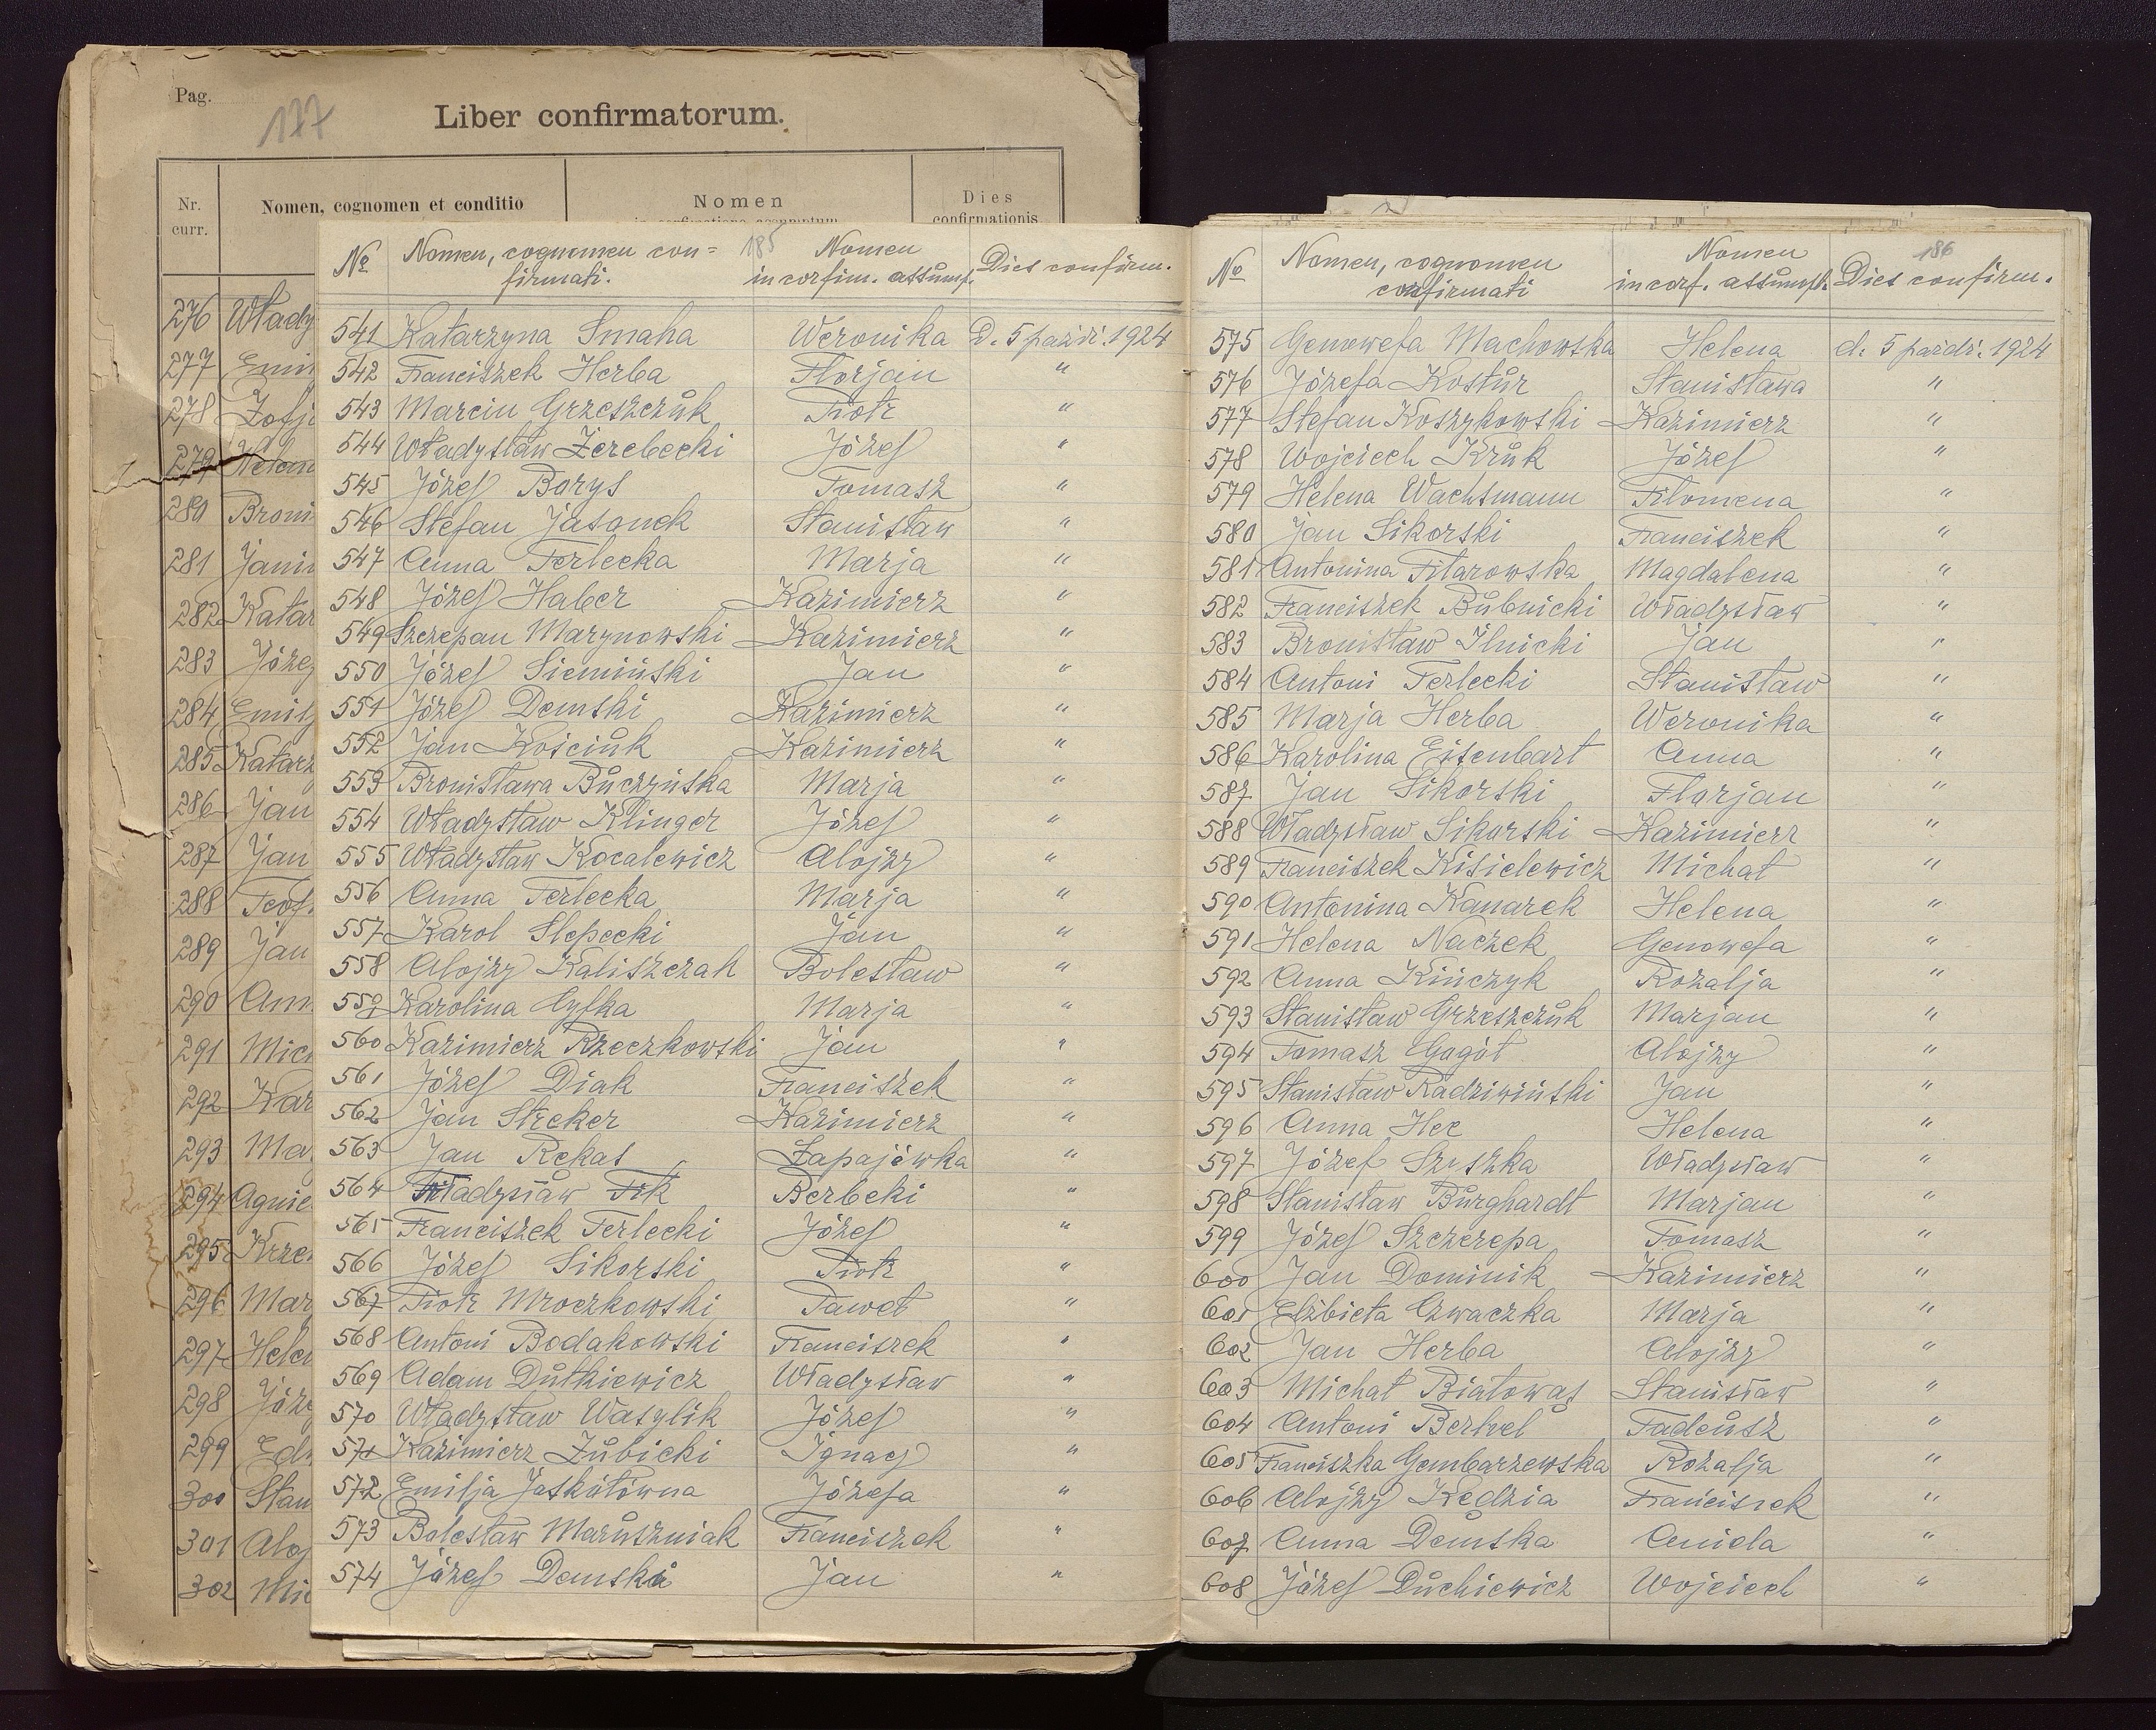 Pag.
177
Liber confirmatorum.
Nr. curr.
Nomen, cognomen et conditio
Nomen
Dies
confirmationis
276 Włady
277 Emil
278 Zofj
279 Helen
280 Broni
281 Janin
282 Katar
283 Józef
284 Emilj
285 Katarz
286 Jan
287 Jan
288 Teof.
289 Jan
290 Ann
291 Mich
292 Kar
293 Mar
294 Agnie
295 Krze
296 Mar
297 Helen
298 Józe
299 Edw
300 Stan
301 Aloj
302 Mic
185
No Nomen, cognomen con= Nomen Dies confirm.
firmati. in confirm. assump.
541 Katarzyna Smaha Weronika D. 5 paźdź. 1924
542 Franciszek Herba Florjan "
543 Marcin Grzeszczuk Piotr "
544 Władysław Żerebecki Józef "
545 Józef Borys Tomasz "
546 Stefan Jasonek Stanisław "
547 Anna Terlecka Marja "
548 Józef Haber Kazimierz "
549 Szczepan Marynowski Kazimierz "
550 Józef Siemiński Jan "
551 Józef Demski Kazimierz "
552 Jan Kościuk Kazimierz "
553 Bronisława Buczyńska Marja "
554 Władysław Klinger Józef "
555 Władysław Kocalewicz Alojzy "
556 Anna Terlecka Marja "
557 Karol Slepecki Jan "
558 Alojzy Kaliszczak Bolesław "
559 Karolina Cyfka Marja "
560 Kazimierz Rzeczkowski Jan "
561 Józef Diak Franciszek "
562 Jan Streker Kazimierz "
563 Jan Rekas Łapajówka "
564 Władysław Fik Berbeki "
565 Franciszek Terlecki Józef "
566 Józef Sikorski Piotr "
567 Piotr Mroczkowski Paweł "
568 Antoni Bodakowski Franciszek "
569 Adam Dutkiewicz Władysław "
570 Władysław Wasylik Józef "
571 Kazimierz Zubicki Ignacy "
572 Emilja Jaskółówna Józefa "
573 Bolesław Maruszniak Franciszek "
574 Józef Demski Jan "
186
No Nomen, cognomen Nomen Dies confirm.
confirmati in conf. assumpt.
575 Genowefa Machowska Helena d. 5 paźdź. 1924
576 Józefa Kostur Stanisława "
577 Stefan Koszykowski Kazimierz "
578 Wojciech Kruk Józef "
579 Helena Wachsmann Filomena "
580 Jan Sikorski Franciszek "
581 Antonina Pilarowska Magdalena "
582 Franciszek Bubnicki Władysław "
583 Bronisław Ilnicki Jan "
584 Antoni Terlecki Stanisław "
585 Marja Herba Weronika "
586 Karolina Eisenbart Anna "
587 Jan Sikorski Florjan "
588 Władysław Sikorski Kazimierz "
589 Franciszek Kisielewicz Michał "
590 Antonina Kanarek Helena "
591 Helena Naczek Genowefa "
592 Anna Kińczyk Rozalja "
593 Stanisław Grzeszczuk Marjan "
594 Tomasz Gogót Alojzy "
595 Stanisław Radziwiński Jan "
596 Anna Hec Helena "
597 Józef Szyszka Władysław "
598 Stanisław Burghardt Marjan "
599 Józef Szczerepa Tomasz "
600 Jan Dominik Kazimierz "
601 Elżbieta Czwaczka Marja "
602 Jan Herba Alojzy "
603 Michał Białowąs Stanisław "
604 Antoni Bertvel Tadeusz "
605 Franciszka Gembarzewska Rozalja "
606 Alojzy Kędzia Franciszek "
607 Anna Demska Aniela "
608 Józef Duchiewicz Wojciech "